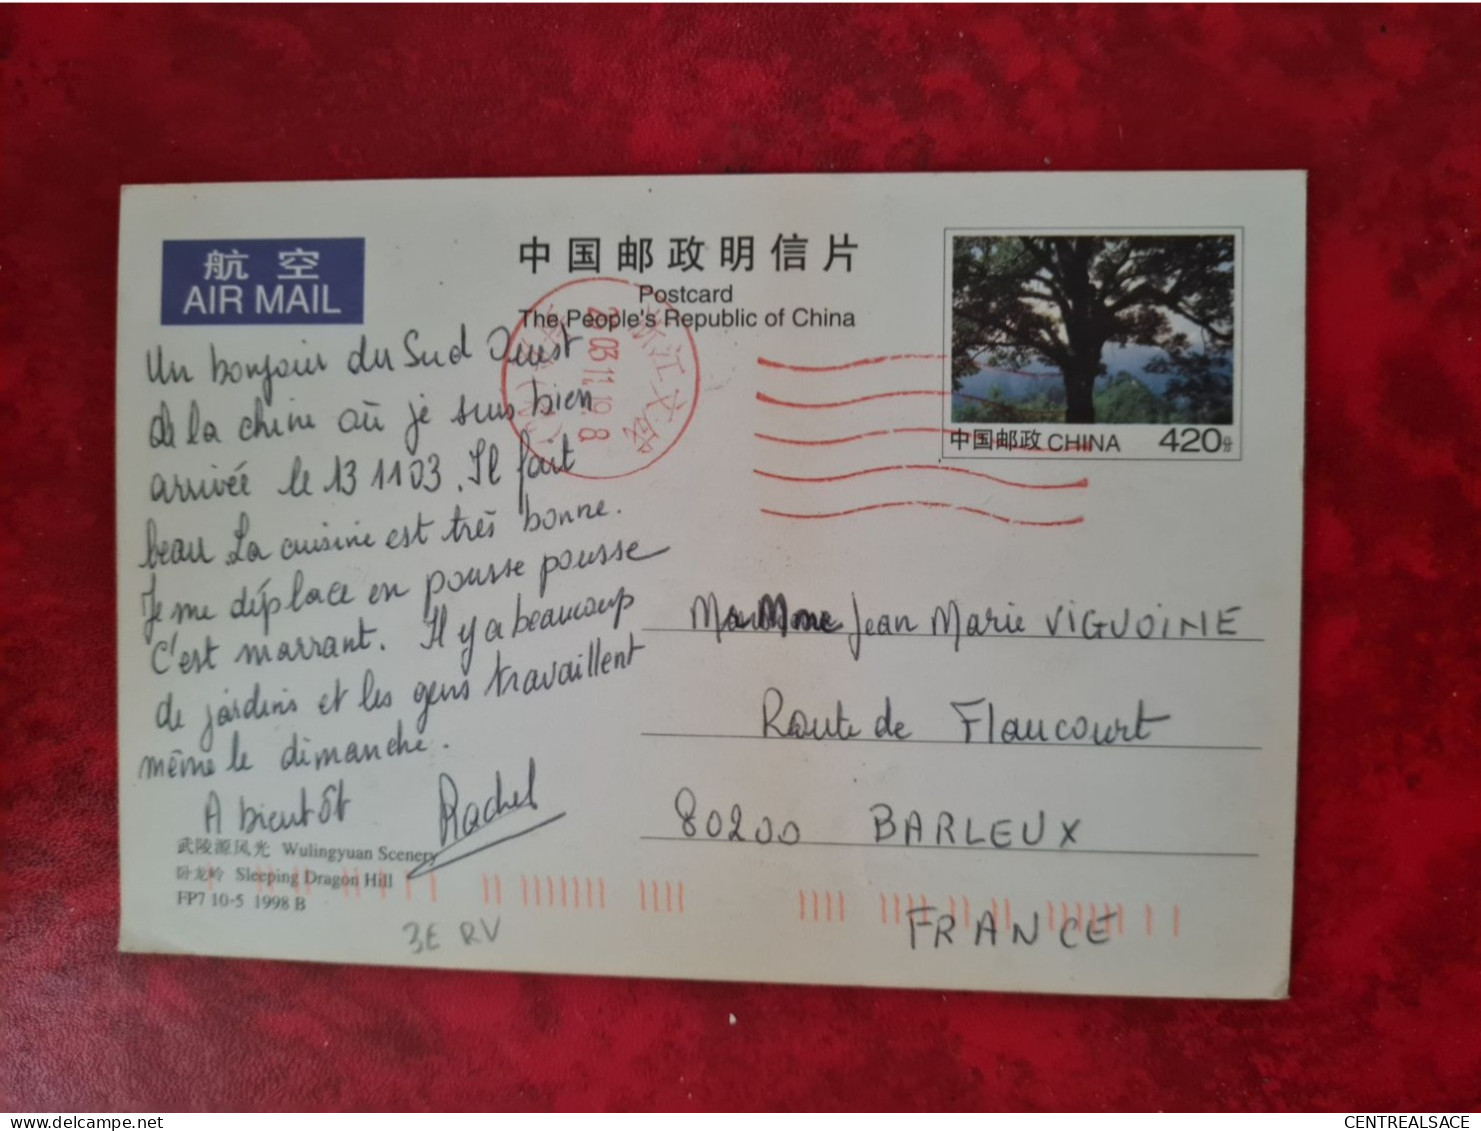 航 空
AIR MAIL
中国邮政明信片
Postcard
The People's Republic of China
浙江
2003.11.19. 8
中国邮政 CHINA 420分
Un bonjour du Sud Ouest
de la chine où je suis bien
arrivée le 13 11 03. Il fait
beau. La cuisine est très bonne.
Je me déplace en pousse pousse
C'est marrant. Il y a beaucoup
de jardins et les gens travaillent
même le dimanche.
A bientôt Rachel
武陵源风光 Wulingyuan Scenery
卧龙岭 Sleeping Dragon Hill
FP7 10-5 1998 B
3E RV
Mme Jean Marie VIGUOINE
Route de Flaucourt
80200 BARLEUX
FRANCE
www.delcampe.net
CENTREALSACE